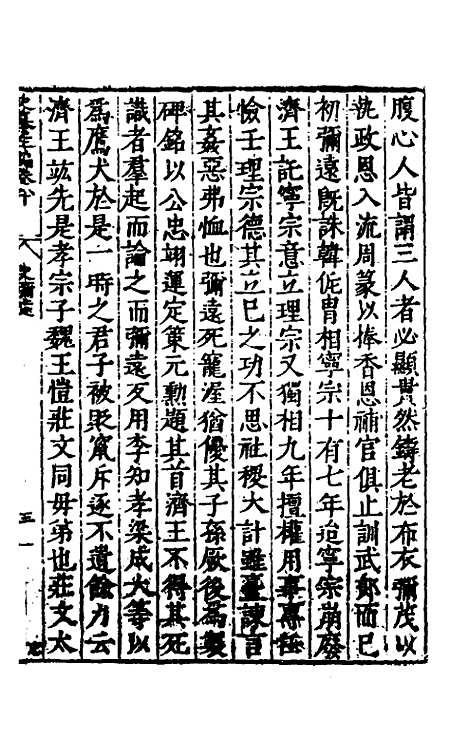 腹心人皆謂三人者必顯貴然鑄老於布衣彌茂以
執政恩入流周篆以捧香恩補官俱止訓武郎而已
初彌遠既誅韓侂胄相寧宗十有七年迨寧宗崩廢
濟王託寧宗意立理宗又獨相九年擅權用事專任
憸壬理宗德其立己之功不思社稷大計雖臺諫言
其姦惡弗恤也彌遠死寵渥猶優其子孫厥後為製
碑銘以公忠翊運定策元勲題其首濟王不得其死
識者羣起而論之而彌遠反用李知孝梁成大等以
為鷹犬於是一時之君子被貶竄斥逐不遺餘力云
濟王竑先是孝宗子魏王愷莊文同毋弟也莊文太
史彌遠
五一